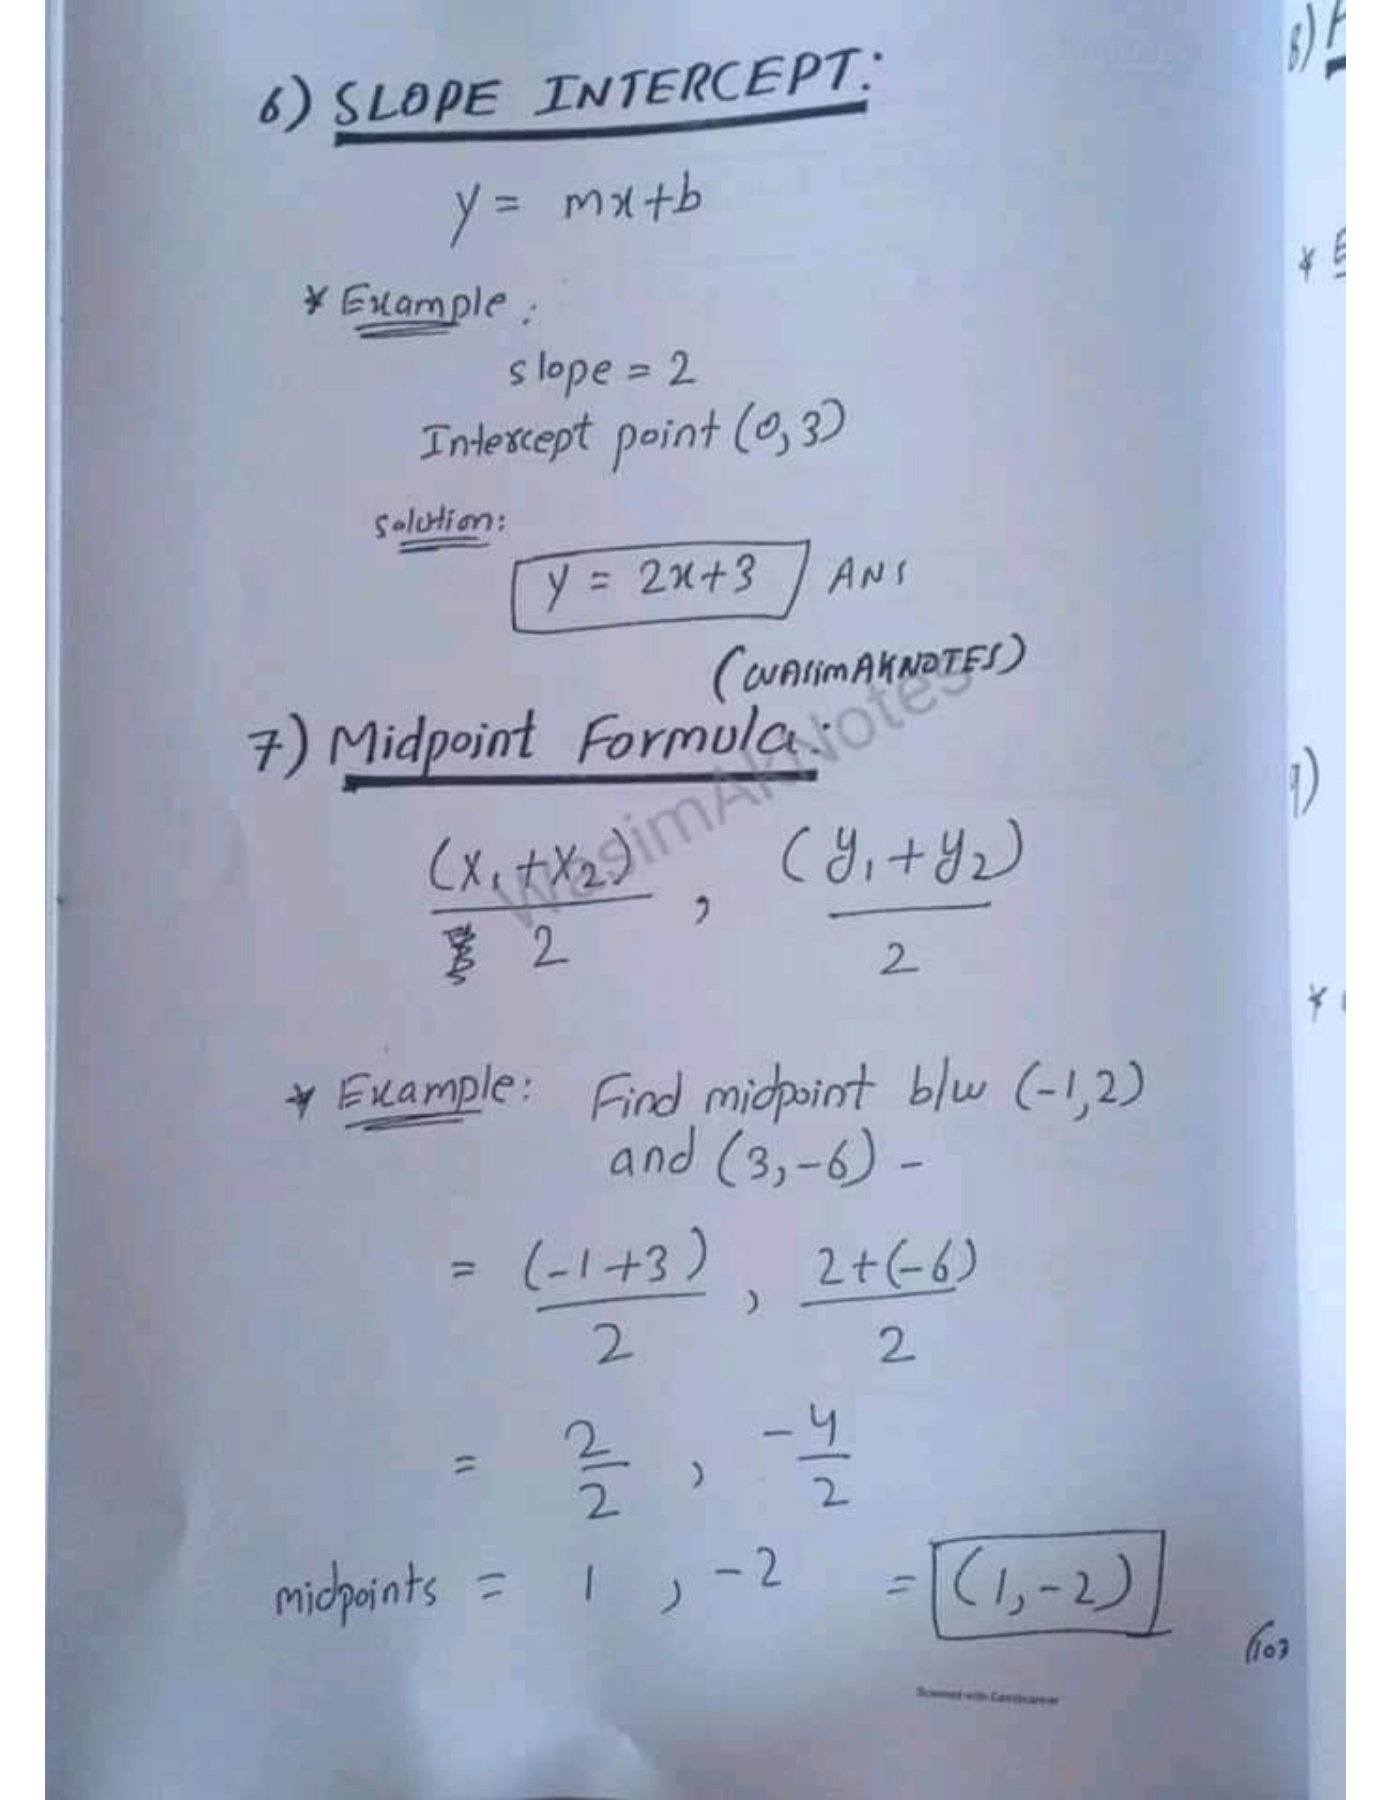 6) SLOPE INTERCEPT:
y = mx+b
* Example :
slope = 2
Intercept point (0,3)
solution:
y = 2x+3 ANS
(WASimAKNOTES)
7) Midpoint Formula:
(x₁+x₂)/2 , (y₁+y₂)/2
WasimAkNotes
* Example: Find midpoint b/w (-1,2)
and (3,-6) -
= (-1+3)/2 , 2+(-6)/2
= 2/2 , -4/2
midpoints = 1 , -2 = (1,-2)
Scanned with CamScanner
8)
*
9)
*